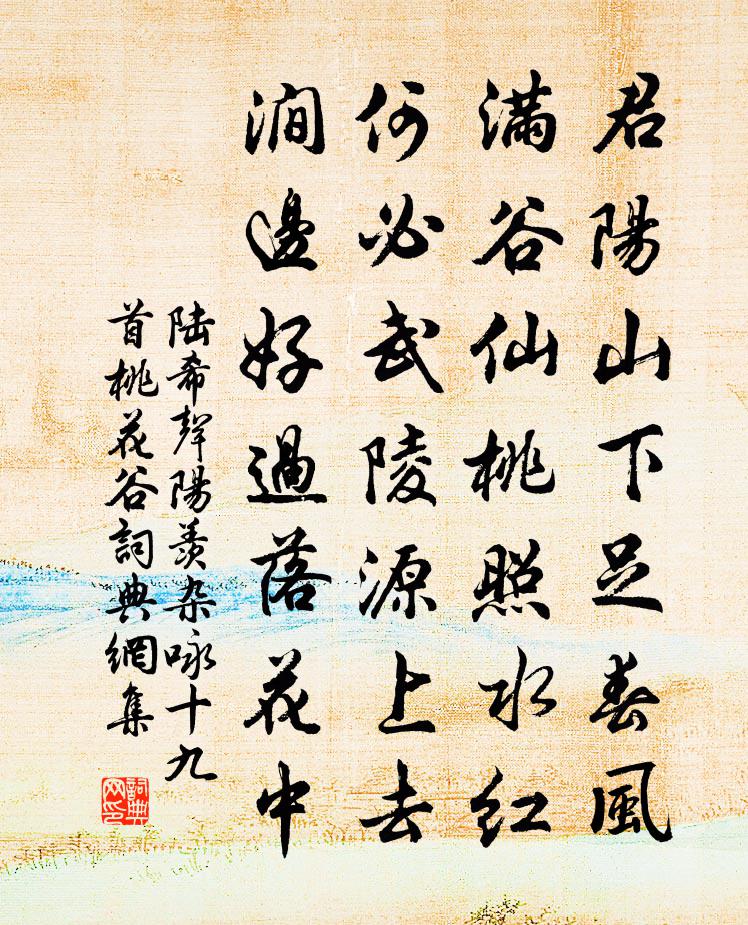 君陽山下足春風
滿谷仙桃照水紅
何必武陵源上去
澗邊好過落花中
陆希聲陽羨杂咏十九
首桃花谷詞典網集
詞典网印